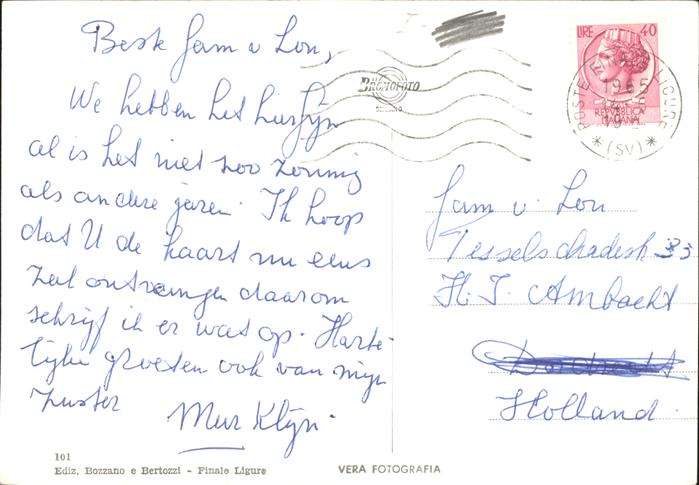 Beste fam v Lon,
We hebben het hier fijn
al is het niet zoo zonnig
als andere jaren. Ik hoop
dat U de kaart nu eens
zal ontvangen daarom
schrijf ik er wat op. Harte-
lijke groeten ook van mijn
zuster
Mur Klijn.
LIRE 40
REPVBBLICA
ITALIANA
BROMOFOTO
MILANO
POSTE LIGURE
1965
* (SV) *
Fam v. Lon
Tesselschadestr 33
H. I. Ambacht
Holland.
101
Ediz. Bozzano e Bertozzi - Finale Ligure
VERA FOTOGRAFIA